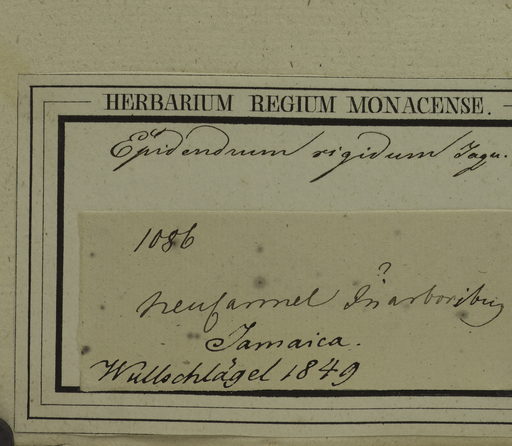 HERBARIUM REGIUM MONACENSE.
Epidendrum rigidum Jaqu.
1086
Neufarmel In arboribus
Jamaica.
Wullschlägel 1849